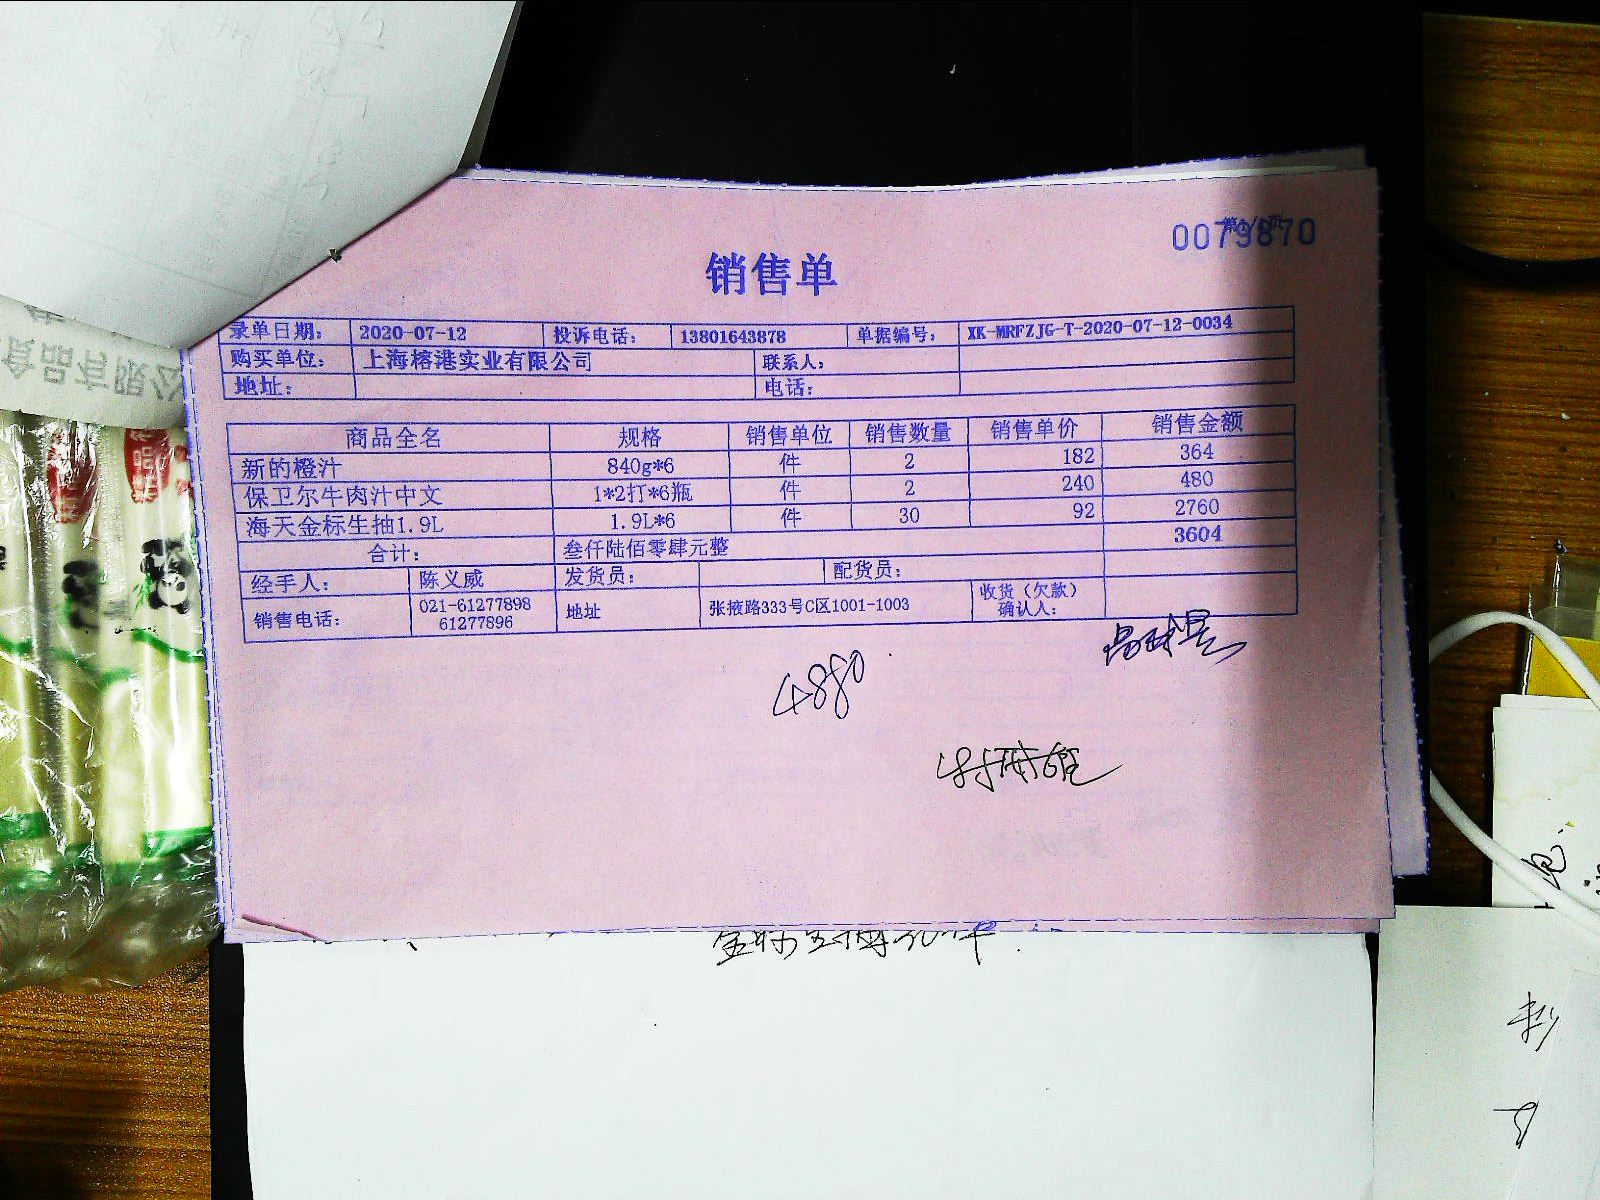 0079870
销售单
录单日期： 2020-07-12 投诉电话： 13801643878 单据编号： XK-MRFZJG-T-2020-07-12-0034
购买单位： 上海榕港实业有限公司 联系人：
地址： 电话：
商品全名 规格 销售单位 销售数量 销售单价 销售金额
新的橙汁 840g*6 件 2 182 364
保卫尔牛肉汁中文 1*2打*6瓶 件 2 240 480
海天金标生抽1.9L 1.9L*6 件 30 92 2760
合计： 叁仟陆佰零肆元整 3604
经手人： 陈义威 发货员： 配货员：
销售电话： 021-61277898 61277896 地址 张掖路333号C区1001-1003 收货（欠款）确认人：
4880